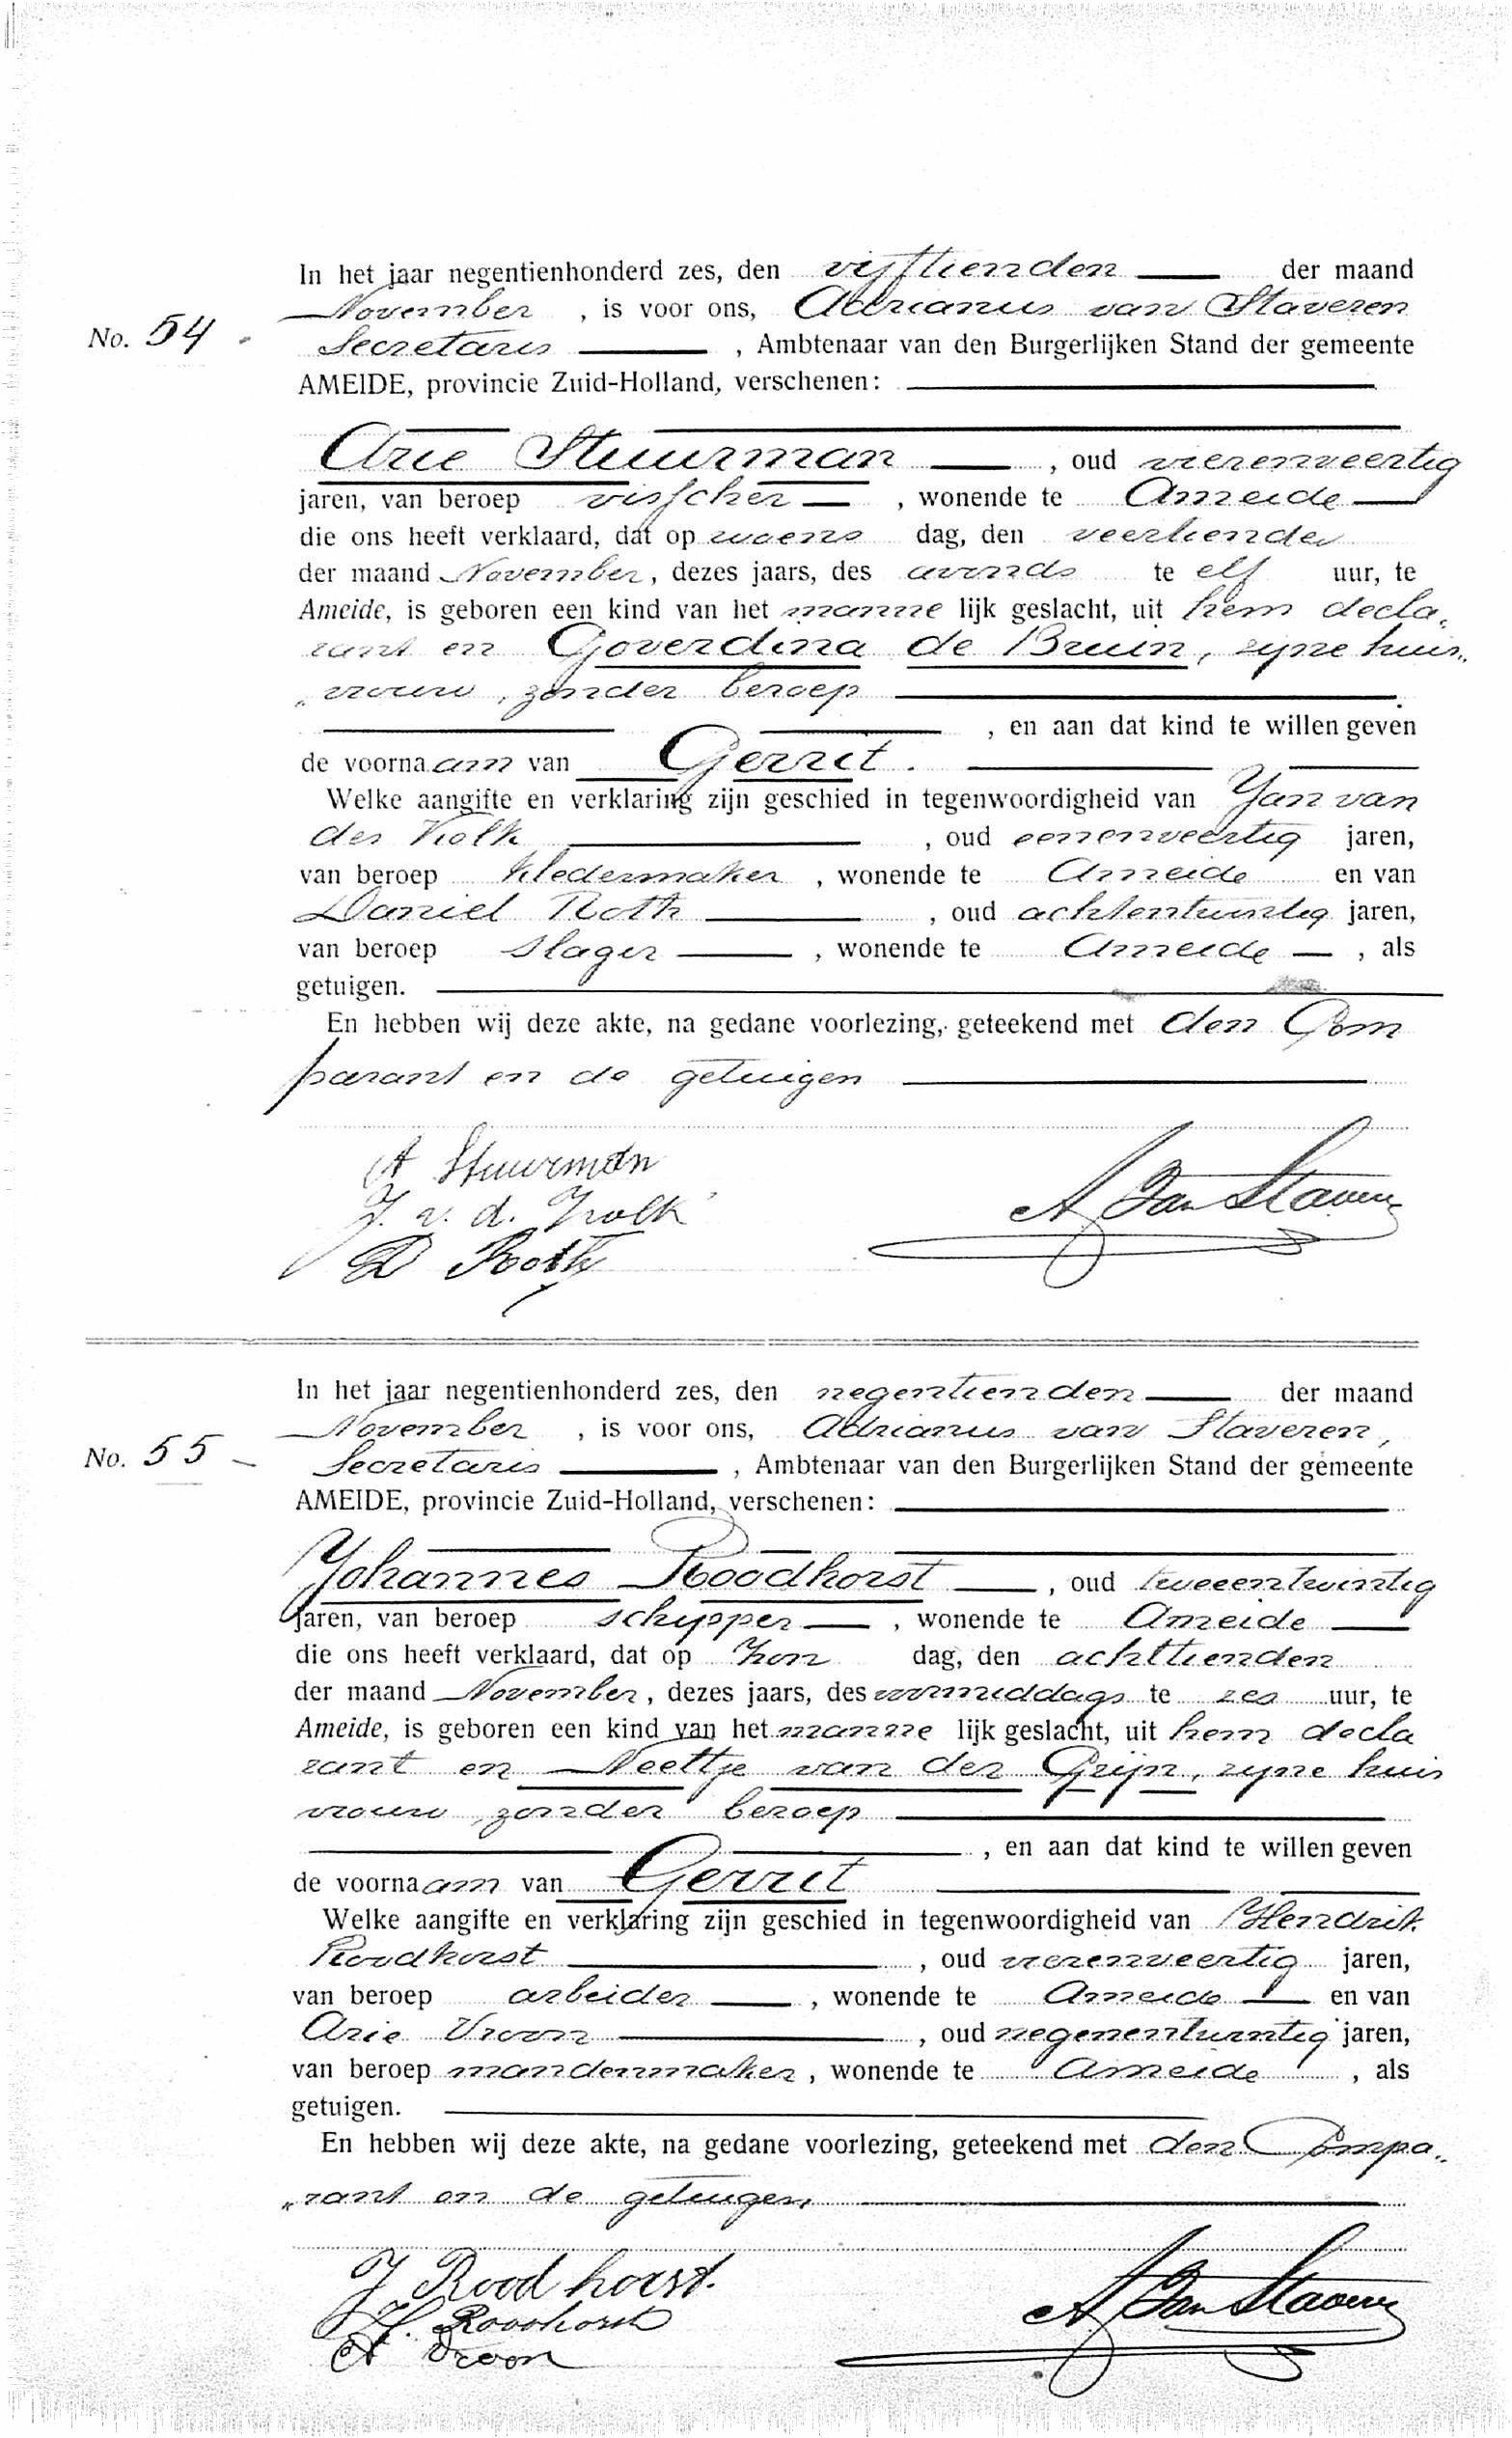 In het jaar negentienhonderd zes, den vijftienden der maand
November , is voor ons, Adrianus van Staveren
No. 54
Secretaris , Ambtenaar van den Burgerlijken Stand der gemeente
AMEIDE, provincie Zuid-Holland, verschenen:
Arie Stuurman , oud vierenveertig
jaren, van beroep visscher , wonende te Ameide
die ons heeft verklaard, dat op woens dag, den veertienden
der maand November, dezes jaars, des avonds te elf uur, te
Ameide, is geboren een kind van het manne lijk geslacht, uit hem decla„
rant en Goverdina de Bruin, zijne huis„
„vrouw, zonder beroep
, en aan dat kind te willen geven
de voornaam van Gerrit.
Welke aangifte en verklaring zijn geschied in tegenwoordigheid van Jan van
der Kolk , oud eenenveertig jaren,
van beroep kledermaker , wonende te Ameide en van
Daniel Roth , oud achtentwintig jaren,
van beroep slager , wonende te Ameide , als
getuigen.
En hebben wij deze akte, na gedane voorlezing, geteekend met den Com
parant en de getuigen
A Stuurman
J. v. d. Kolk
D Rooth
A Van Staveren
In het jaar negentienhonderd zes, den negentienden der maand
November , is voor ons, Adrianus van Staveren,
No. 55
Secretaris , Ambtenaar van den Burgerlijken Stand der gemeente
AMEIDE, provincie Zuid-Holland, verschenen:
Johannes Roodhorst , oud tweeentwintig
jaren, van beroep schipper , wonende te Ameide
die ons heeft verklaard, dat op Zon dag, den achttienden
der maand November, dezes jaars, des voormiddags te zes uur, te
Ameide, is geboren een kind van het manne lijk geslacht, uit hem decla
rant en Neeltje van der Grijn, zijne huis
vrouw, zonder beroep
, en aan dat kind te willen geven
de voornaam van Gerrit
Welke aangifte en verklaring zijn geschied in tegenwoordigheid van Hendrik
Roodhorst , oud vierenveertig jaren,
van beroep arbeider , wonende te Ameide en van
Arie Vroon , oud negenentwintig jaren,
van beroep mandenmaker, wonende te Ameide , als
getuigen.
En hebben wij deze akte, na gedane voorlezing, geteekend met den Compa„
„rant en de getuigen
J Roodhorst.
H. Roodhorst
A Vroon
A Van Staveren